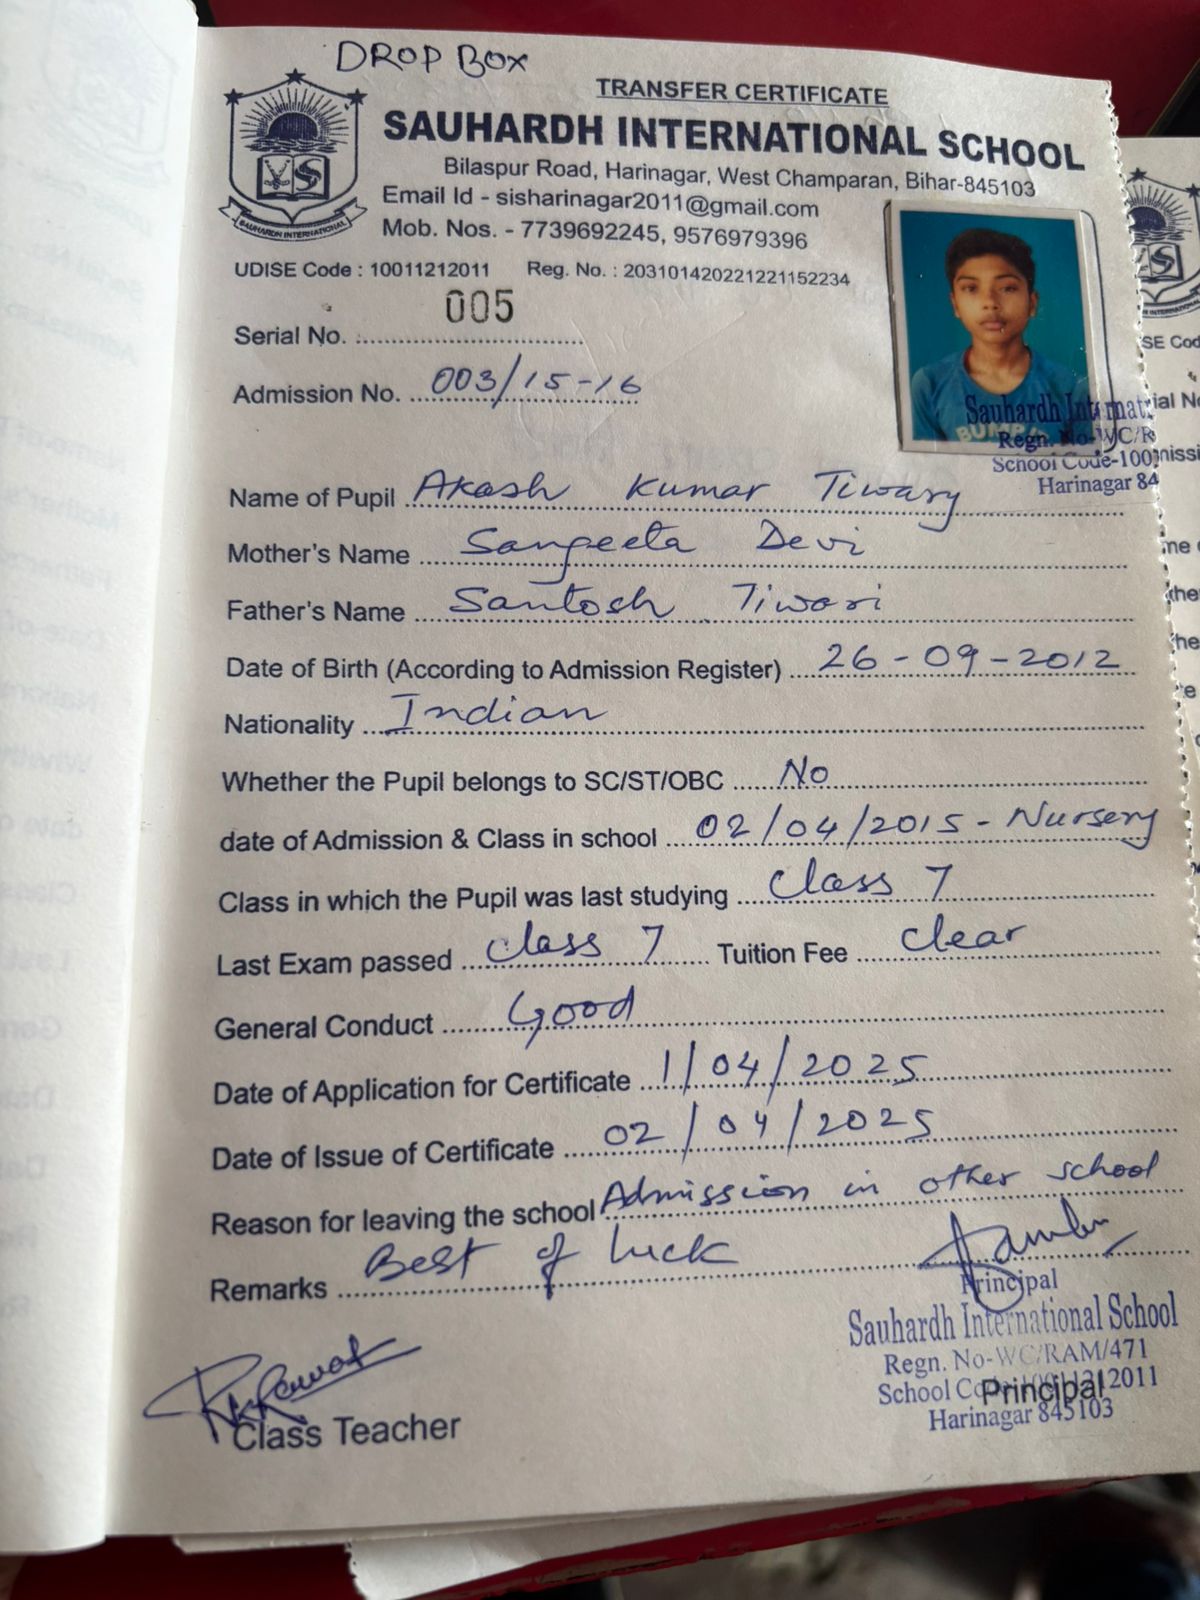 DROP BOX
TRANSFER CERTIFICATE
SAUHARDH INTERNATIONAL SCHOOL
Bilaspur Road, Harinagar, West Champaran, Bihar-845103
Email Id - sisharinagar2011@gmail.com
Mob. Nos. - 7739692245, 9576979396
SAUHARDH INTERNATIONAL
UDISE Code : 10011212011 Reg. No. : 203101420221221152234
005
Serial No.
Admission No. 003/15-16
Sauhardh Internat
Regn. No-WC/R
School Code-100
Harinagar 84
Name of Pupil Akash Kumar Tiwary
Mother's Name Sangeeta Devi
Father's Name Santosh Tiwari
Date of Birth (According to Admission Register) 26-09-2012
Nationality Indian
Whether the Pupil belongs to SC/ST/OBC No
date of Admission & Class in school 02/04/2015 - Nursery
Class in which the Pupil was last studying Class 7
Last Exam passed class 7 Tuition Fee clear
General Conduct Good
Date of Application for Certificate 1/04/2025
Date of Issue of Certificate 02/04/2025
Reason for leaving the school Admission in other school
Remarks Best of luck
Principal
Sauhardh International School
Regn. No-WC/RAM/471
School Code-10011212011
Principal
Harinagar 845103
Class Teacher